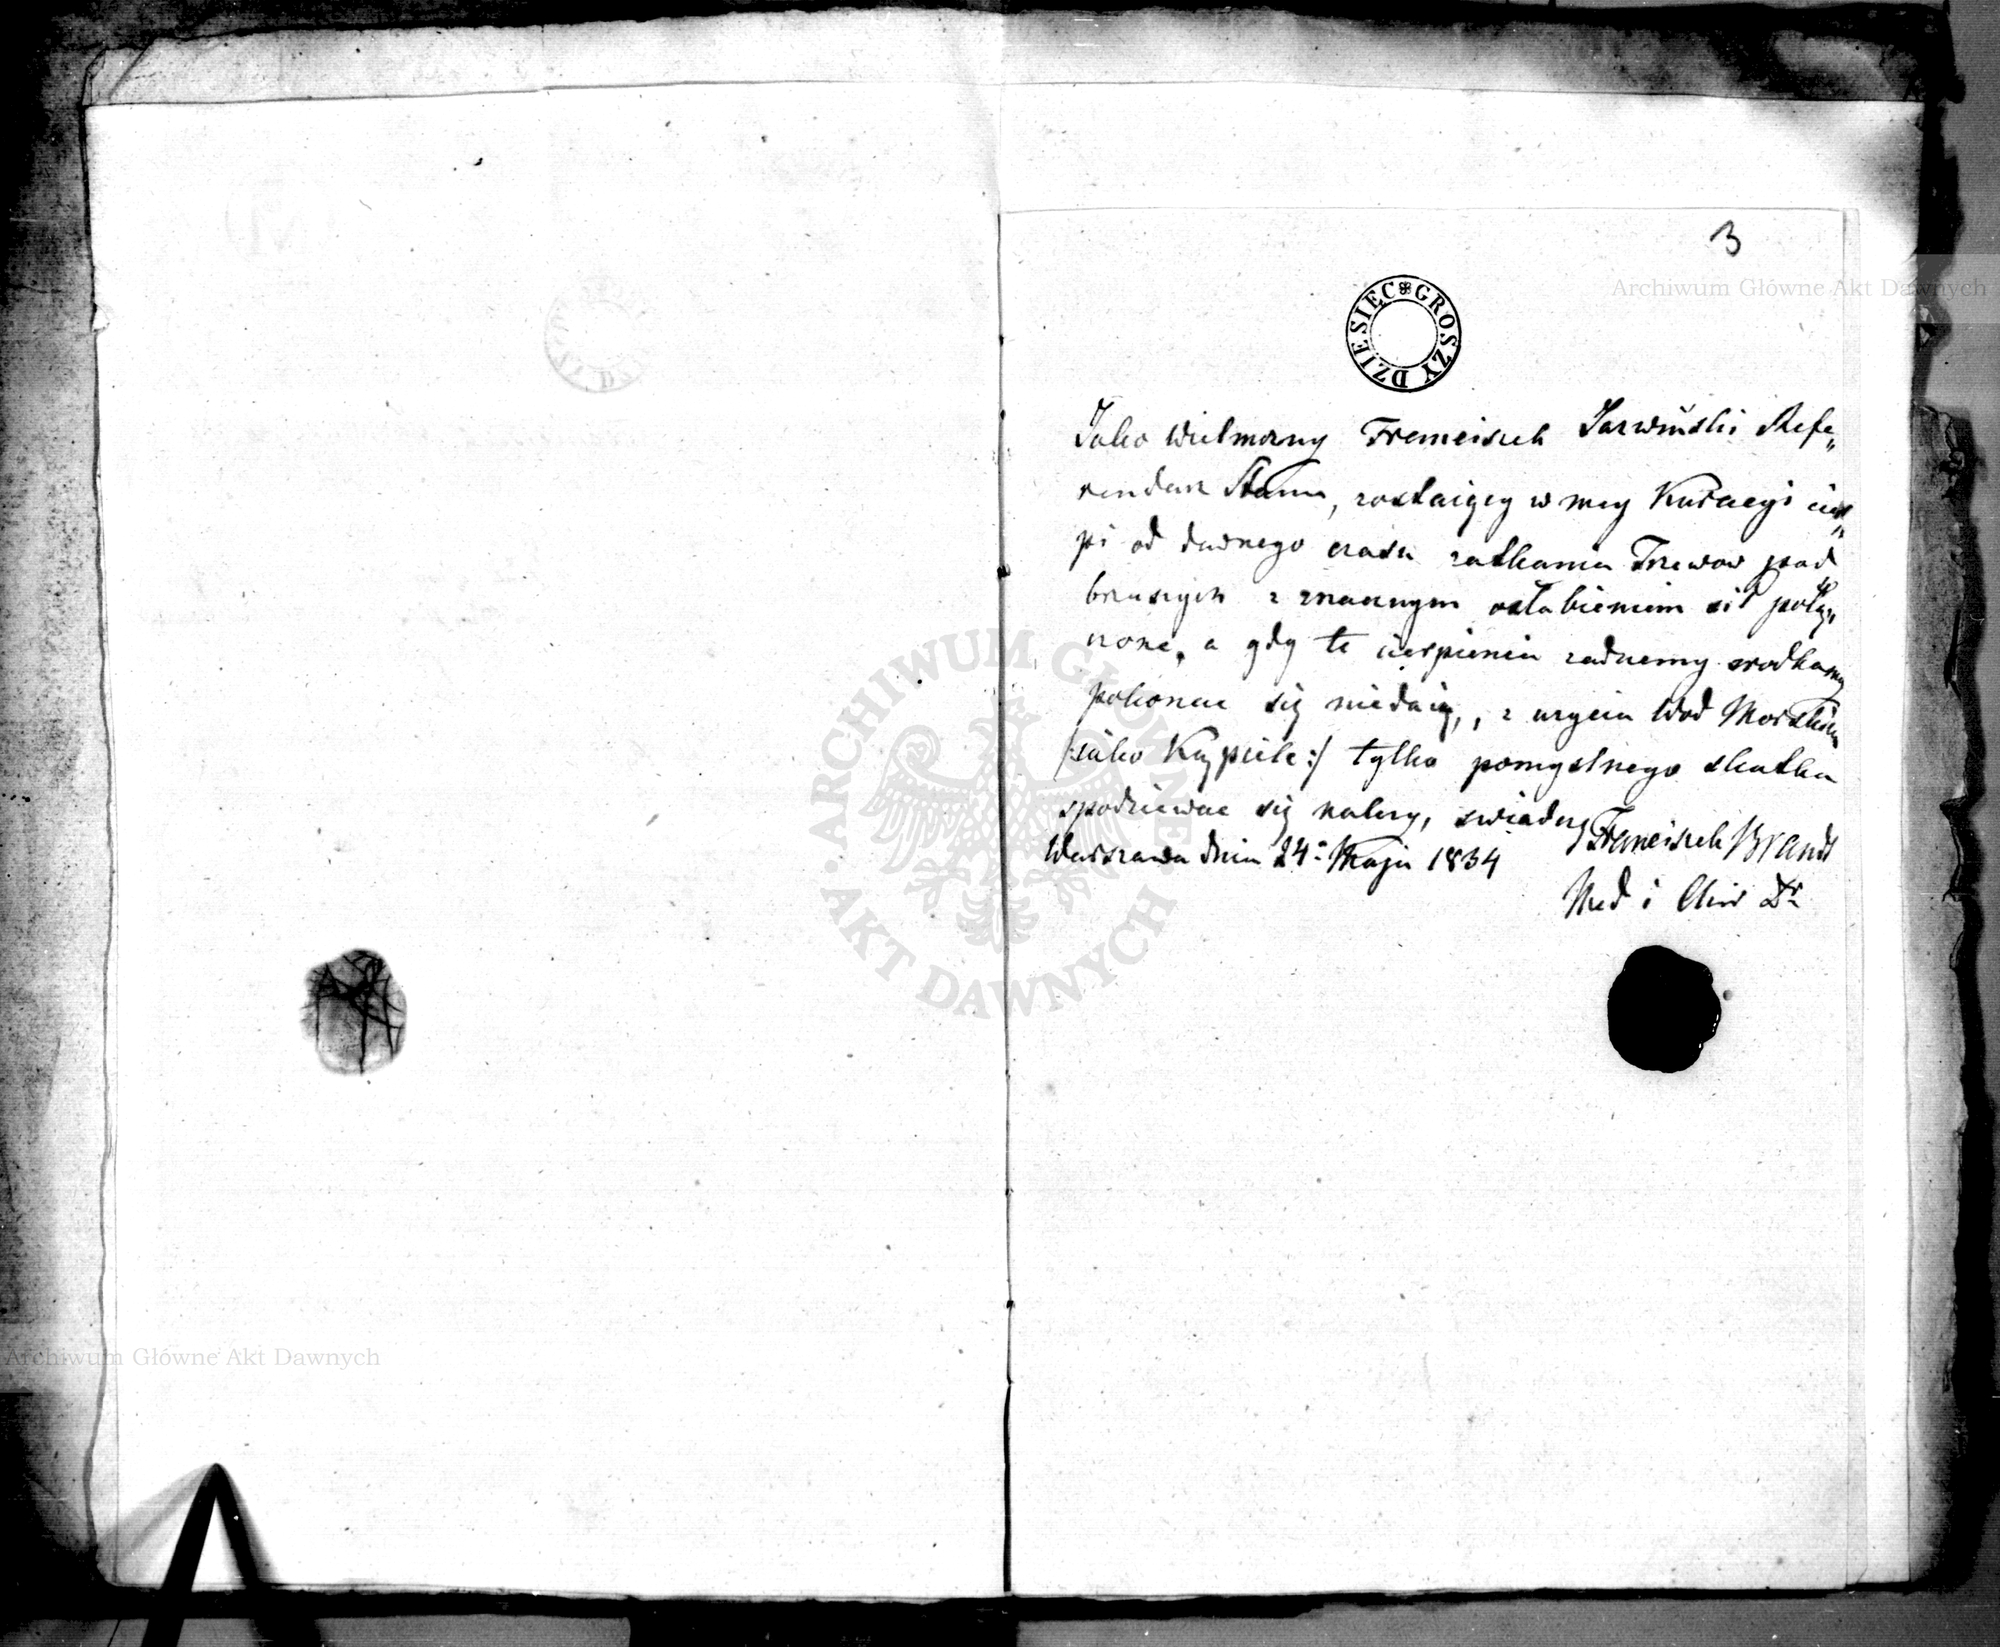 3
Archiwum Główne Akt Dawnych
DZIESIĘC GROSZY
Jako Wielmozny Franciszek Jarwiński Refe„
rendarz Stanu, zostaiący w mey Kuracyi cier„
pi od dawnego czasu zatkania Trzewow pod
brzusznych z znacznym osłabieniem sił połą„
czone, a gdy te cierpienia zadnemy srodkamy
pokonac się niedaią, z uzycia Wod Morskich
/:iako Kąpiele:/ tylko pomyslnego skutku
spodziewac się nalezy, swiadczę Franciszek Brandt
Warszawa dnia 24º Maja 1834
Med i Chir Dr
ARCHIWUM GŁÓWNE AKT DAWNYCH
Archiwum Główne Akt Dawnych